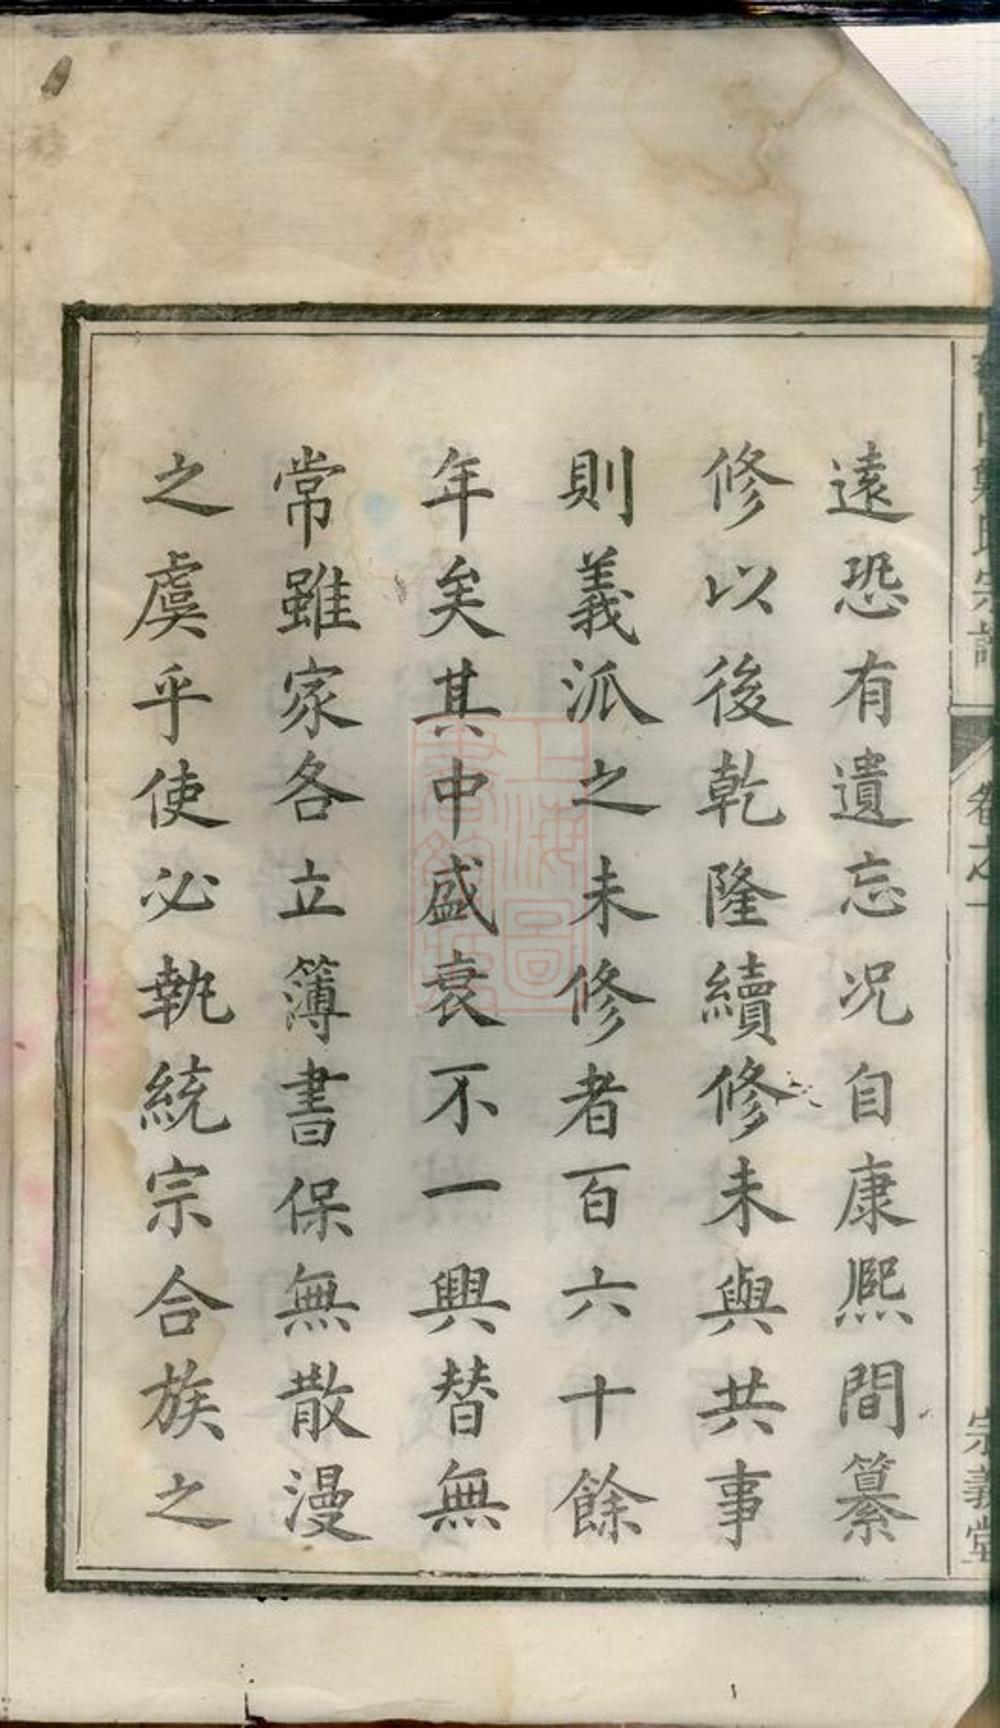 遠恐有遺忘况自康熙間纂
修以後乾隆續修未與共事
則義派之未修者百六十餘
年矣其中盛衰不一興替無
常雖家各立簿書保無散漫
之虞乎使必執統宗合族之
氏宗譜
卷之一
宗義堂
上海圖
書館藏